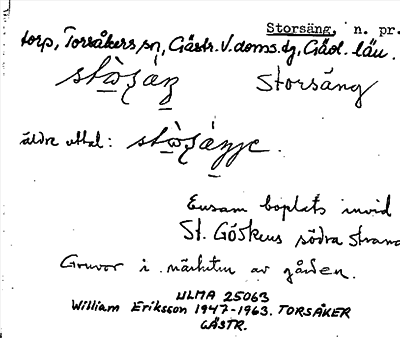 Storsäng, n. pr.
torp, Torsåkers sn, Gästr. V. doms. dg, Gävl. län.
Storsäng
äldre uttal:
Ensam boplats invid
St. Gösken södra strand
Gruvor i närheten av gården.
ULMA 25063
William Eriksson 1947-1963. TORSÅKER
GÄSTR.